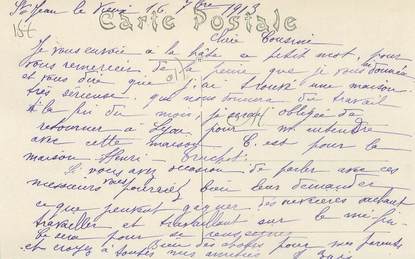 St Jean le Vieux 16 7bre 1913
Carte Postale
Chère Cousine
Je vous envoie à la hâte ce petit mot, pour
vous remercier de la peine que je vous ai donnée
et vous dire que j'ai trouvé une maison
très sérieuse, qui nous donnera du travail
à la fin du mois, je serai obligée de
retourner à Lyon pour m'entendre
avec cette maison C. est pour la
maison Henri
Si vous avez occasion de parler avec ces
messieurs vous pourriez bien leur demander
ce que peuvent gagner des ouvrières sachant
travailler et travaillant sur le
pour se renseigner
Bien des choses pour vos parents
et croyez à toutes mes amitiés